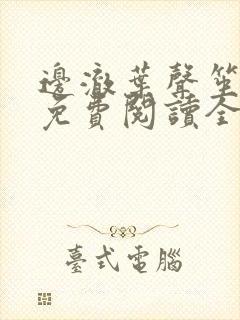 邊澈葉聲笙
免費閱讀全
臺式電腦